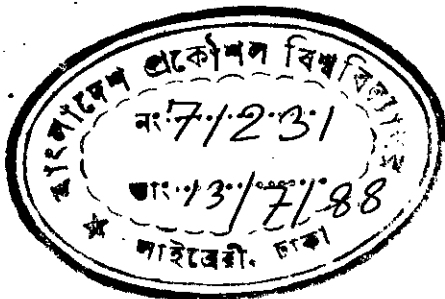 বাংলাদেশ প্রকৌশল বিশ্ববিদ্যালয়
নং 71231
তাং 13/7/88
লাইব্রেরী, ঢাকা